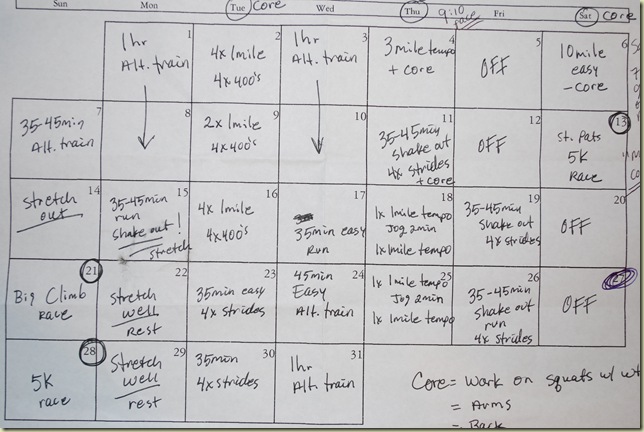 Sun Mon Tue Core Wed Thu 9:10 pace Fri Sat Core
1
1hr
Alt. train
2
4x 1mile
4x400's
3
1hr
Alt. train
4
3mile tempo
+ core
5
OFF
6
10 mile
easy
-core
7
35-45min
Alt. train
8
9
2x 1mile
4x400's
10
11
35-45min
shake out
4x strides
+core
12
OFF
13
St. Pats
5K
Race
14
Stretch
out
15
35-45min
run
shake out!
stretch
16
4x 1mile
4x400's
17
35min easy
Run
18
1x 1mile tempo
Jog 2min
1x 1mile tempo
19
35-45min
shake out
4x strides
20
OFF
21
Big Climb
Race
22
Stretch
well
rest
23
35min easy
4x strides
24
45min
Easy
Alt. train
25
1x 1mile tempo
Jog 2min
1x 1mile tempo
26
35-45min
shake out
run
4x strides
27
OFF
28
5K
race
29
Stretch
well
rest
30
35min
4x strides
31
1hr
Alt. train
Core = Work on squats w/ wt
= Arms
= Back